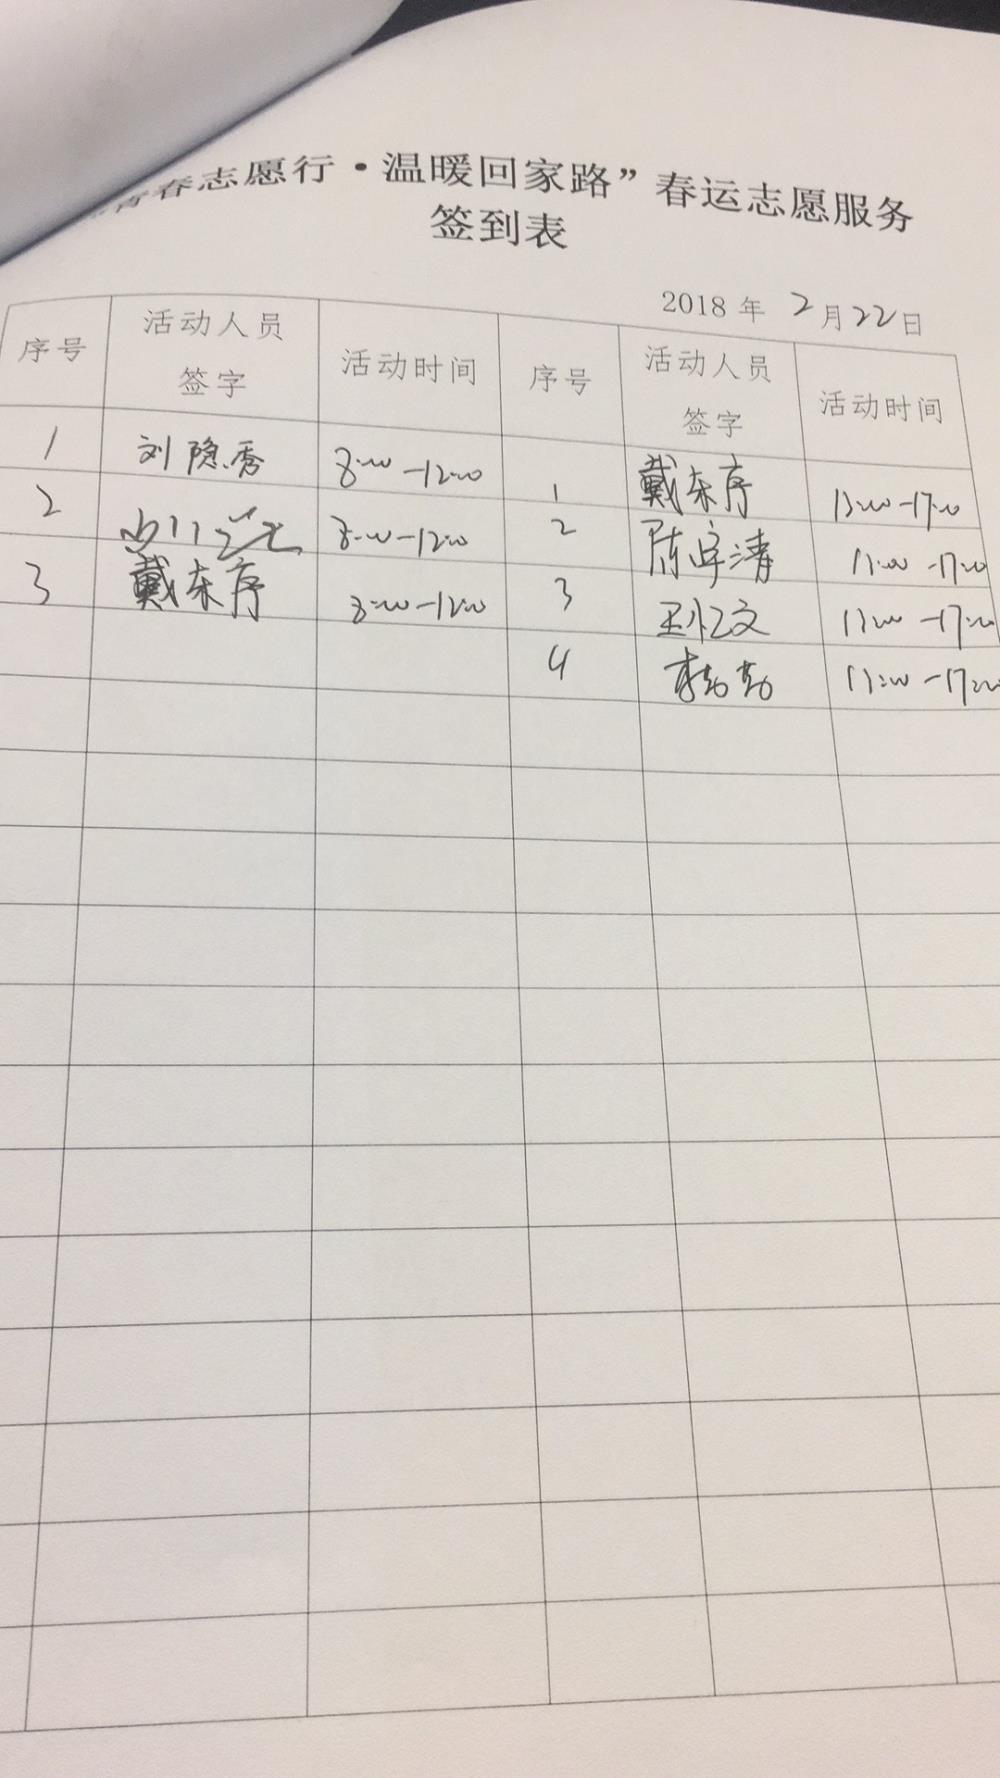 青春志愿行·温暖回家路”春运志愿服务
签到表
2018 年 2 月 22 日
序号 活动人员签字 活动时间 序号 活动人员签字 活动时间
1 刘隐秀 8:00-12:00 1 戴东序 13:00-17:00
2 8:00-12:00 2 陈宇清 13:00-17:00
3 戴东序 8:00-12:00 3 王忆文 13:00-17:00
4 李勤勤 13:00-17:00